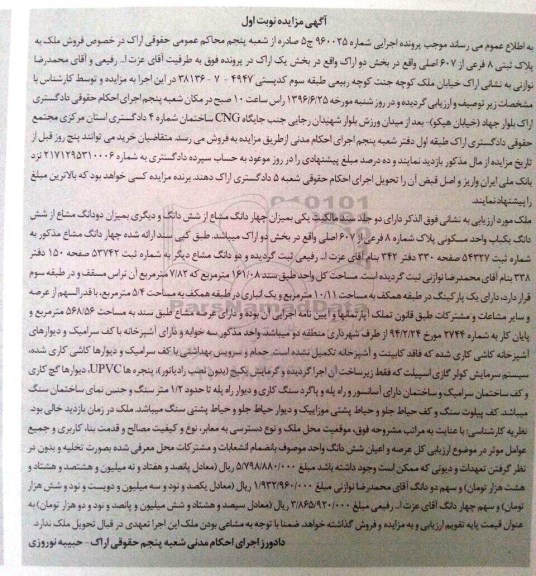 آگهی مزایده نوبت اول
به اطلاع عموم می رساند موجب پرونده اجرایی شماره ۹۶۰۰۲۵ ج۵ صادره از شعبه پنجم محاکم عمومی حقوقی اراک در خصوص فروش ملک به
پلاک ثبتی ۸ فرعی از ۶۰۷ اصلی واقع در بخش دو اراک واقع در بخش یک اراک در پرونده فوق به ظرفیت آقای عزت ا... رفیعی و آقای محمدرضا
نوازنی به نشانی اراک خیابان ملک کوچه جنت کوچه ربیعی طبقه سوم کدپستی ۴۹۴۷ - ۷ - ۳۸۱۳۶ در این اجرا به مزایده و توسط کارشناس با
مشخصات زیر توصیف و ارزیابی گردیده و در روز شنبه مورخه ۱۳۹۶/۶/۲۵ راس ساعت ۱۰ صبح در مکان شعبه پنجم اجرای احکام حقوقی دادگستری
اراک بلوار جهاد (خیابان هپکو)- بعد از میدان ورزش بلوار شهیدان رجایی جنب جایگاه CNG ساختمان شماره ۴ دادگستری استان مرکزی مجتمع
حقوقی دادگستری اراک طبقه اول دفتر شعبه پنجم اجرای احکام مدنی ازطریق مزایده به فروش می رسد. متقاضیان خرید می توانند پنج روز قبل از
تاریخ مزایده از مال مذکور بازدید نمایند و ده درصد مبلغ پیشنهادی را در روز موعود به حساب سپرده دادگستری به شماره ۲۱۷۱۲۹۵۳۱۰۰۰۶ نزد
بانک ملی ایران واریز و اصل قبض آن را تحویل اجرای احکام حقوقی شعبه ۵ دادگستری اراک دهند. برنده مزایده کسی خواهد بود که بالاترین مبلغ
را پیشنهاد نمایند.
ملک مورد ارزیابی به نشانی فوق الذکر دارای دو جلد سند مالکیت یکی بمیزان چهار دانگ مشاع از شش دانگ و دیگری بمیزان دودانگ مشاع از شش
دانگ یکباب واحد مسکونی پلاک شماره ۸ فرعی از ۶۰۷ اصلی واقع در بخش دو اراک میباشد. طبق کپی سند ارائه شده چهار دانگ مشاع مذکور به
شماره ثبت ۵۴۳۲۷ صفحه ۳۳۰ دفتر ۳۴۲ بنام آقای عزت ا... رفیعی ثبت گردیده و دو دانگ مشاع دیگر به شماره ثبت ۵۳۷۴۲ صفحه ۱۵۰ دفتر
۳۳۸ بنام آقای محمدرضا نوازنی ثبت گردیده است. مساحت کل واحد طبق سند ۱۶۱/۰۸ مترمربع که ۷/۸۲ مترمربع آن تراس مسقف و در طبقه سوم
قرار دارد، دارای یک پارکینگ در طبقه همکف به مساحت ۱۰/۱۱ مترمربع و یک انباری در طبقه همکف به مساحت ۵/۴ مترمربع، با قدرالسهم از عرصه
و سایر مشاعات و مشترکات طبق قانون تملک آپارتمانها و آیین نامه اجرایی آن بوده و دارای عرصه مشاع طبق سند به مساحت ۵۶۸/۵۶ مترمربع و
پایان کار به شماره ۳۷۴۴ مورخ ۹۴/۲/۲۴ از طرف شهرداری منطقه دو میباشد. واحد مذکور سه خوابه و دارای آشپزخانه با کف سرامیک و دیوارهای
آشپزخانه کاشی کاری شده که فاقد کابینت و آشپزخانه تکمیل نشده است. حمام و سرویس بهداشتی با کف سرامیک و دیوارها کاشی کاری شده،
سیستم سرمایش کولر گازی اسپیلت که فقط زیرساخت آن اجرا گردیده و گرمایش پکیج (بدون نصب رادیاتور)، پنجره ها UPVC، دیوارها گچ کاری
و کف ساختمان سرامیک و ساختمان دارای آسانسور و راه پله و پاگرد سنگ کاری و دیوار راه پله تا حدود ۱/۲ متر سنگ و جنس نمای ساختمان سنگ
میباشد. کف پیلوت سنگ و کف حیاط جلو و حیاط پشتی موزاییک و دیوار حیاط جلو و حیاط پشتی سنگ میباشد. ملک در زمان بازدید خالی بود.
نظریه کارشناسی: با عنایت به مراتب مشروحه فوق، موقعیت محل ملک و نوع دسترسی به معابر، نوع و کیفیت مصالح و قدمت بنا، کاربری و جمیع
عوامل موثر در موضوع ارزیابی کل عرصه و اعیان شش دانگ واحد موصوف بانضمام انشعابات و مشترکات محل معرفی شده بصورت تخلیه و بدون در
نظر گرفتن تعهدات و دیونی که ممکن است وجود داشته باشد مبلغ ۵/۷۹۸/۸۸۰/۰۰۰ ریال (معادل پانصد و هفتاد و نه میلیون و هشتصد و هشتاد و
هشت هزار تومان) و سهم دو دانگ آقای محمدرضا نوازنی مبلغ ۱/۹۳۲/۹۶۰/۰۰۰ ریال (معادل یکصد و نود و سه میلیون و دویست و نود و شش هزار
تومان) و سهم چهار دانگ آقای عزت ا... رفیعی مبلغ ۳/۸۶۵/۹۲۰/۰۰۰ ریال (معادل سیصد و هشتاد و شش میلیون و پانصد و نود و دو هزار تومان) به
عنوان قیمت پایه تقویم ارزیابی و به مزایده و فروش گذاشته خواهد. ضمنا با توجه به مشاعی بودن ملک این اجرا تعهدی در قبال تحویل ملک ندارد.
دادورز اجرای احکام مدنی شعبه پنجم حقوقی اراک - حبیبه نوروزی